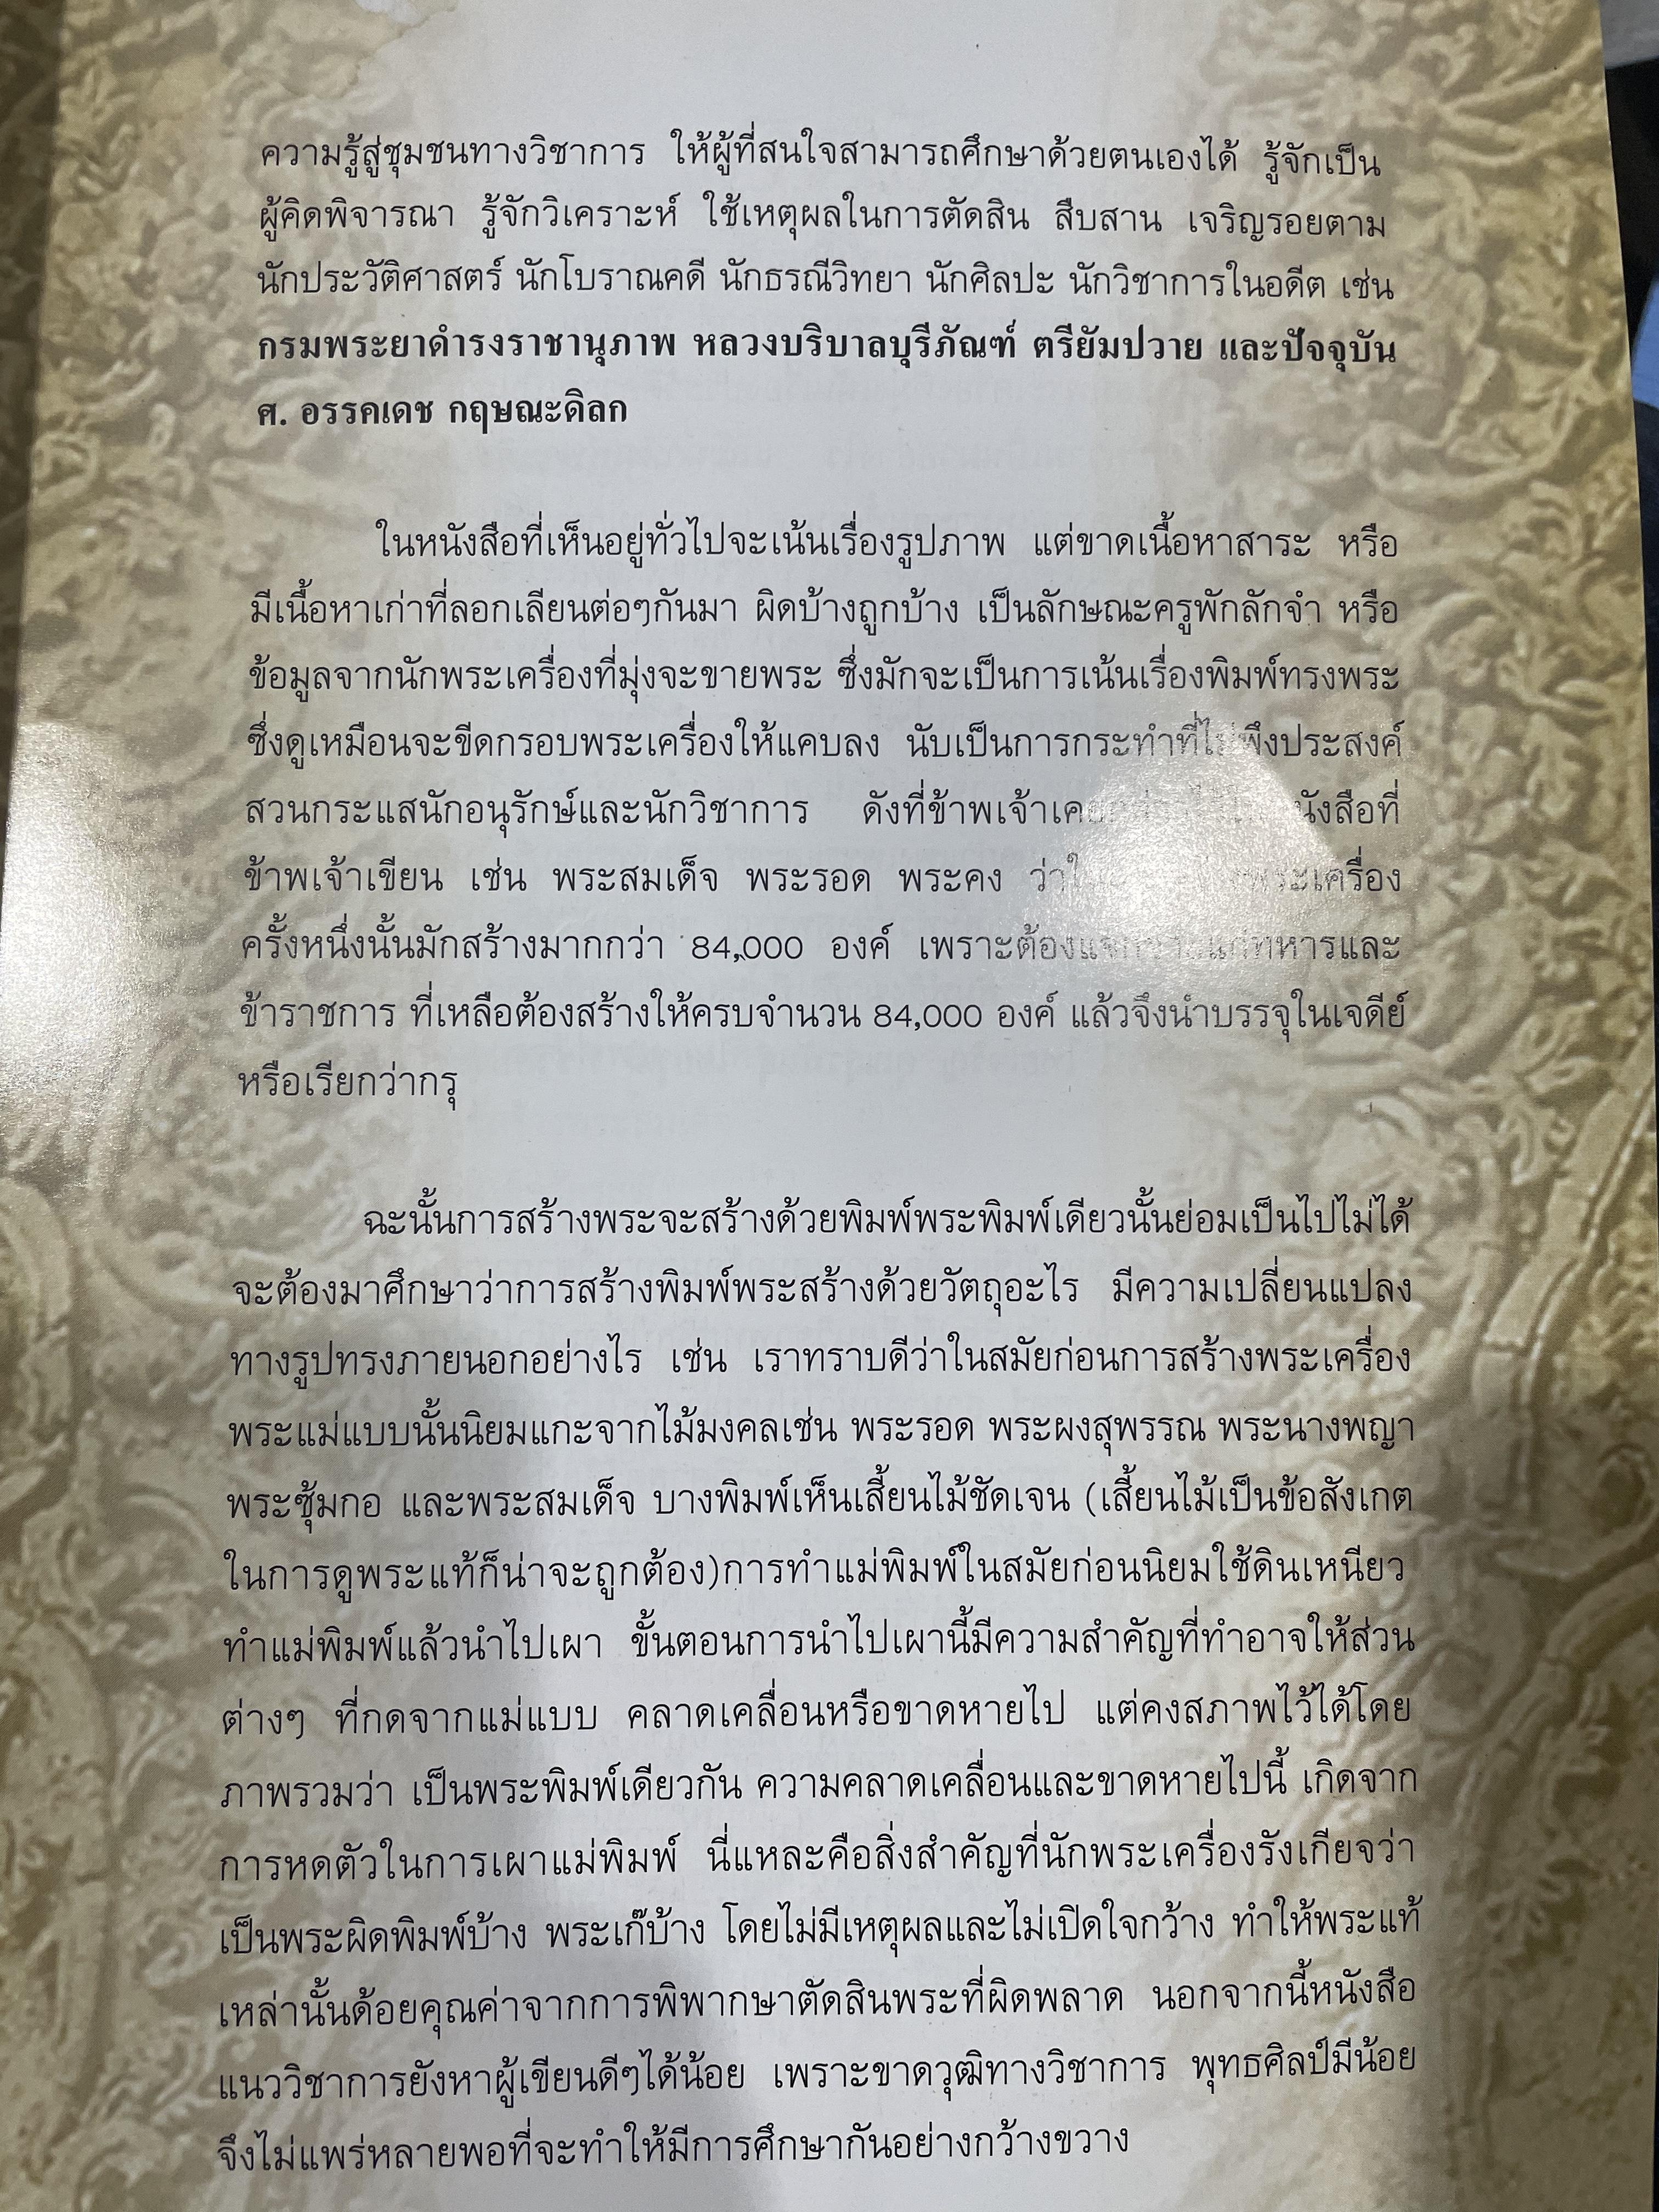 ความรู้สู่ชุมชนทางวิชาการ ให้ผู้ที่สนใจสามารถศึกษาด้วยตนเองได้ รู้จักเป็น
ผู้คิดพิจารณา รู้จักวิเคราะห์ ใช้เหตุผลในการตัดสิน สืบสาน เจริญรอยตาม
นักประวัติศาสตร์ นักโบราณคดี นักธรณีวิทยา นักศิลปะ นักวิชาการในอดีต เช่น
กรมพระยาดำรงราชานุภาพ หลวงบริบาลบุรีภัณฑ์ ตรียัมปวาย และปัจจุบัน
ศ. อรรคเดช กฤษณะดิลก
ในหนังสือที่เห็นอยู่ทั่วไปจะเน้นเรื่องรูปภาพ แต่ขาดเนื้อหาสาระ หรือ
มีเนื้อหาเก่าที่ลอกเลียนต่อๆกันมา ผิดบ้างถูกบ้าง เป็นลักษณะครูพักลักจำ หรือ
ข้อมูลจากนักพระเครื่องที่มุ่งจะขายพระ ซึ่งมักจะเป็นการเน้นเรื่องพิมพ์ทรงพระ
ซึ่งดูเหมือนจะขีดกรอบพระเครื่องให้แคบลง นับเป็นการกระทำที่ไม่พึงประสงค์
สวนกระแสนักอนุรักษ์และนักวิชาการ ดังที่ข้าพเจ้าเคย หนังสือที่
ข้าพเจ้าเขียน เช่น พระสมเด็จ พระรอด พระคง ว่าใน พระเครื่อง
ครั้งหนึ่งนั้นมักสร้างมากกว่า 84,000 องค์ เพราะต้องแจกจ่ายแก่ทหารและ
ข้าราชการ ที่เหลือต้องสร้างให้ครบจำนวน 84,000 องค์ แล้วจึงนำบรรจุในเจดีย์
หรือเรียกว่ากรุ
ฉะนั้นการสร้างพระจะสร้างด้วยพิมพ์พระพิมพ์เดียวนั้นย่อมเป็นไปไม่ได้
จะต้องมาศึกษาว่าการสร้างพิมพ์พระสร้างด้วยวัตถุอะไร มีความเปลี่ยนแปลง
ทางรูปทรงภายนอกอย่างไร เช่น เราทราบดีว่าในสมัยก่อนการสร้างพระเครื่อง
พระแม่แบบนั้นนิยมแกะจากไม้มงคลเช่น พระรอด พระผงสุพรรณ พระนางพญา
พระซุ้มกอ และพระสมเด็จ บางพิมพ์เห็นเสี้ยนไม้ชัดเจน (เสี้ยนไม้เป็นข้อสังเกต
ในการดูพระแท้ก็น่าจะถูกต้อง)การทำแม่พิมพ์ในสมัยก่อนนิยมใช้ดินเหนียว
ทำแม่พิมพ์แล้วนำไปเผา ขั้นตอนการนำไปเผานี้มีความสำคัญที่ทำอาจให้ส่วน
ต่างๆ ที่กดจากแม่แบบ คลาดเคลื่อนหรือขาดหายไป แต่คงสภาพไว้ได้โดย
ภาพรวมว่า เป็นพระพิมพ์เดียวกัน ความคลาดเคลื่อนและขาดหายไปนี้ เกิดจาก
การหดตัวในการเผาแม่พิมพ์ นี่แหละคือสิ่งสำคัญที่นักพระเครื่องรังเกียจว่า
เป็นพระผิดพิมพ์บ้าง พระเก๊บ้าง โดยไม่มีเหตุผลและไม่เปิดใจกว้าง ทำให้พระแท้
เหล่านั้นด้อยคุณค่าจากการพิพากษาตัดสินพระที่ผิดพลาด นอกจากนี้หนังสือ
แนววิชาการยังหาผู้เขียนดีๆได้น้อย เพราะขาดวุฒิทางวิชาการ พุทธศิลป์มีน้อย
จึงไม่แพร่หลายพอที่จะทำให้มีการศึกษากันอย่างกว้างขวาง